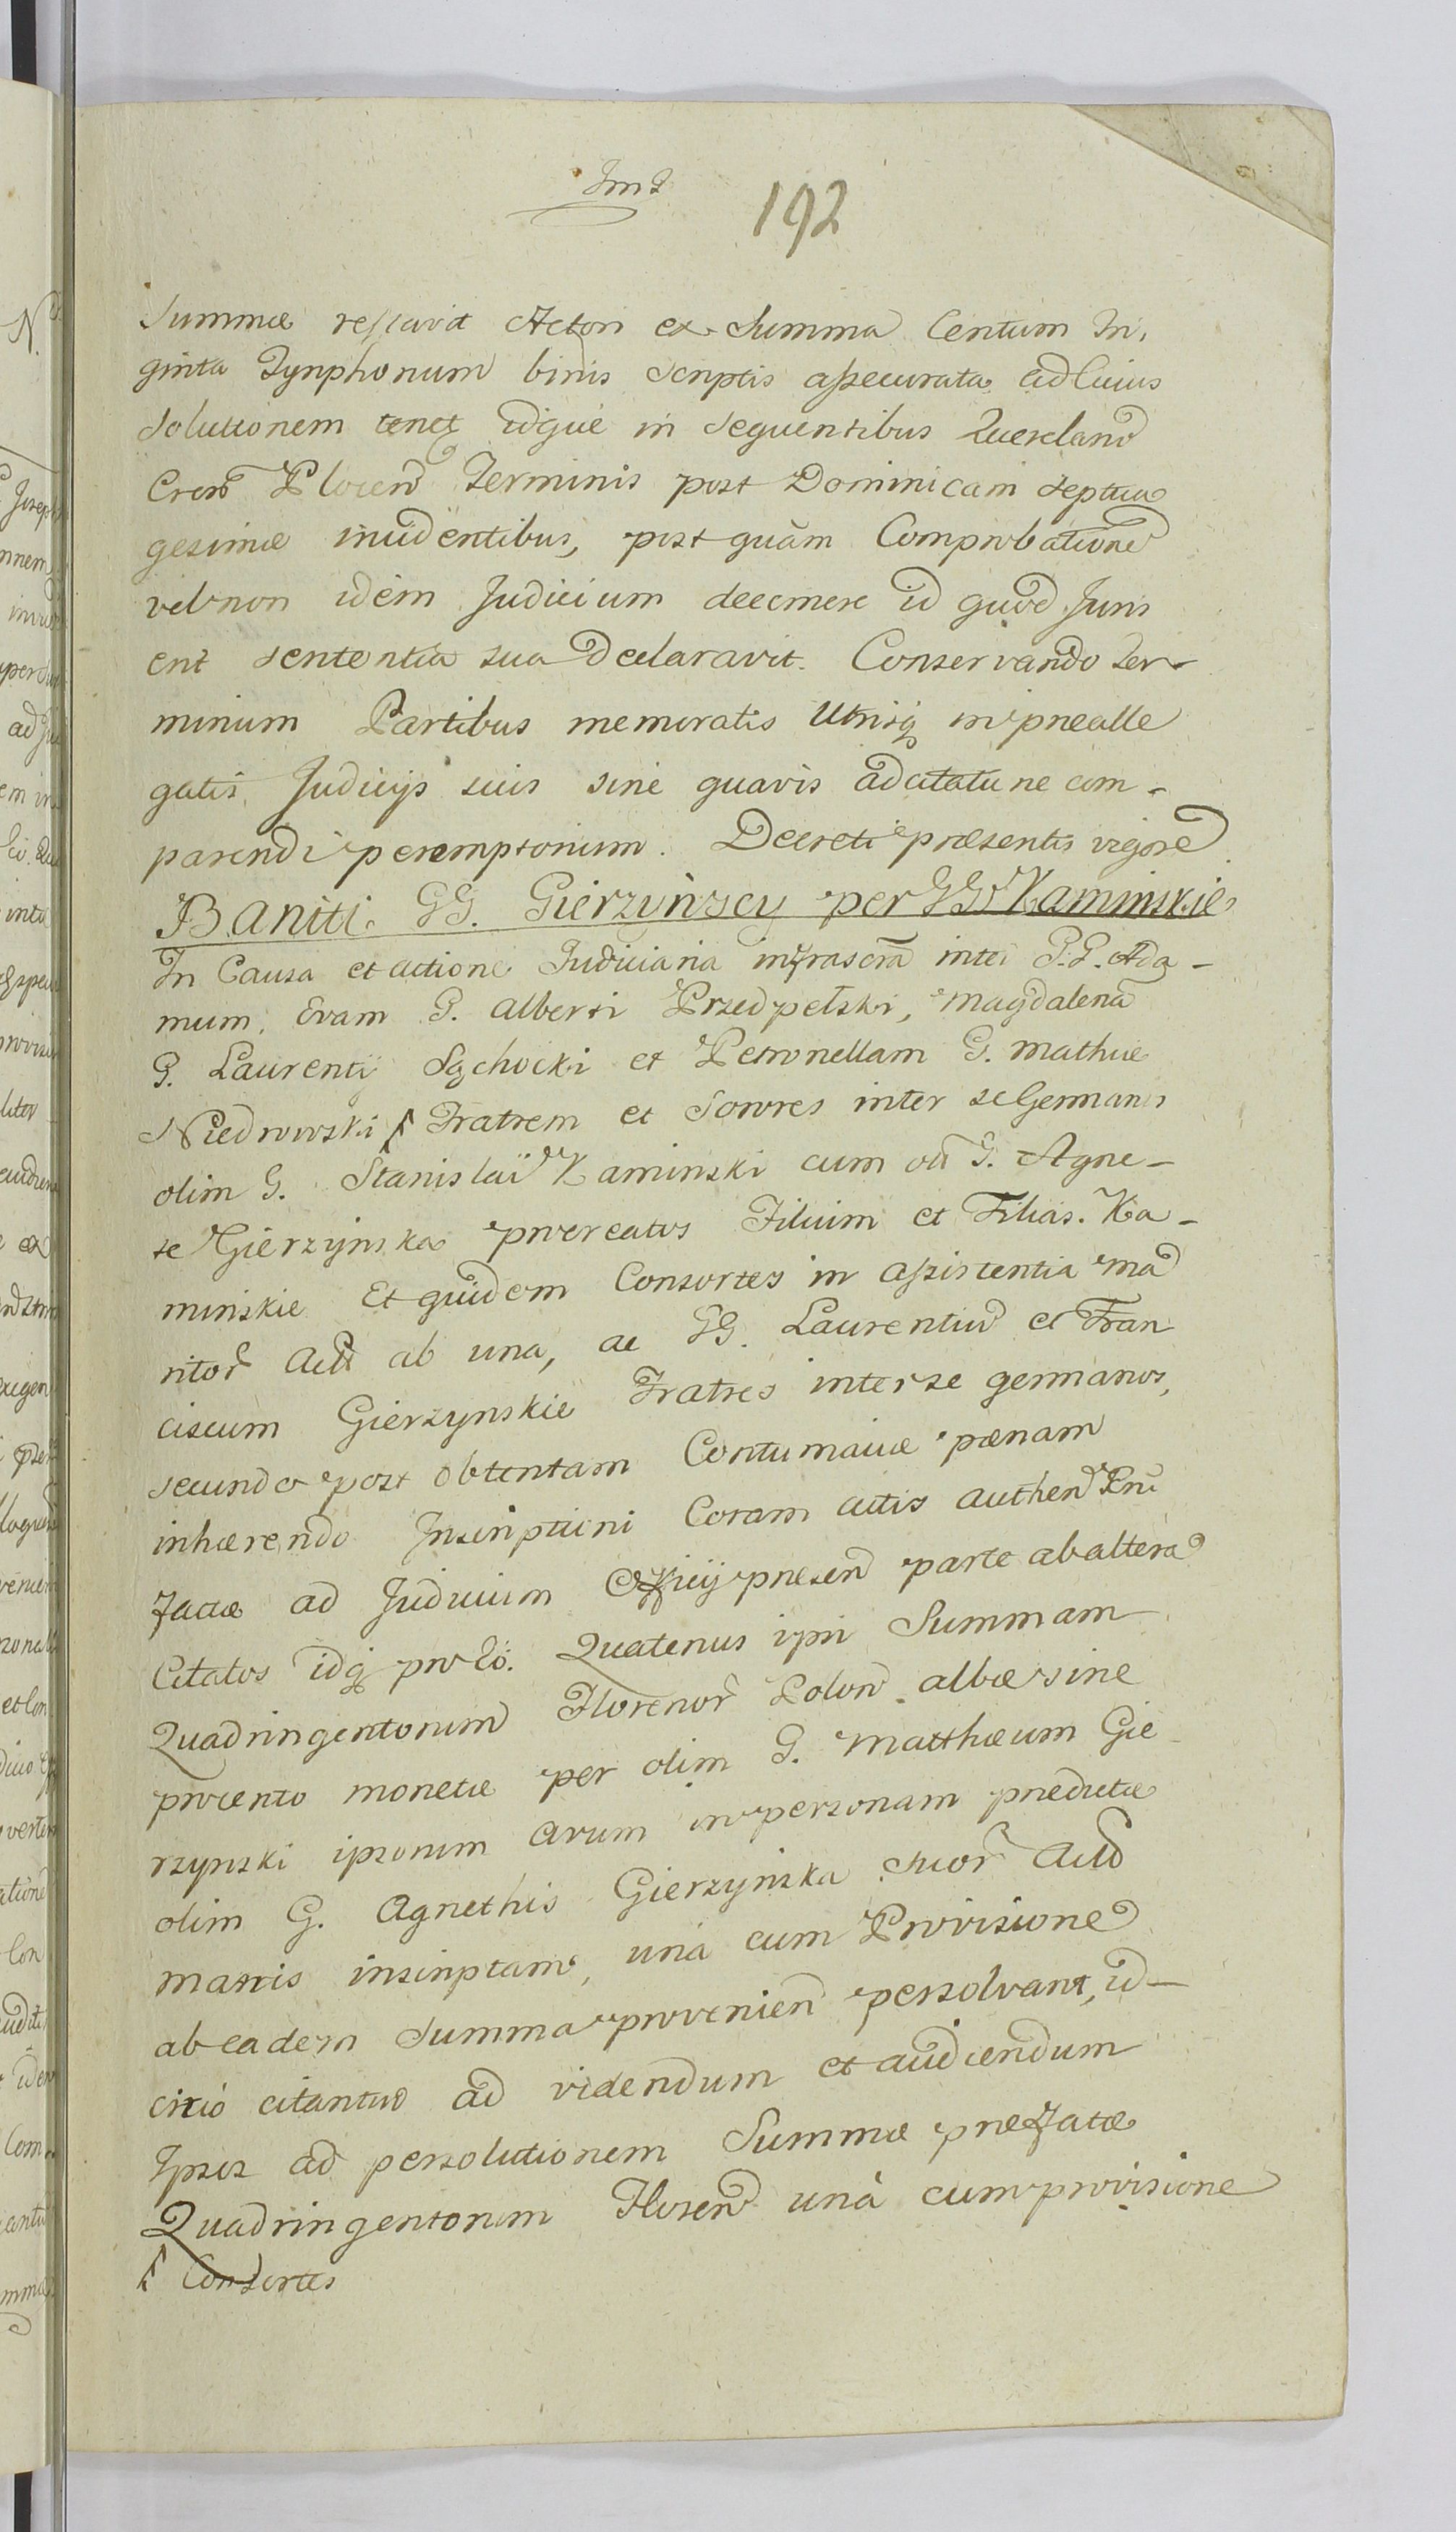 192
Summæ restavit Actori ex Summa Centum Tri,
ginta Tynphonum binis Scriptis assecurata ad Cuius
Solutionem tenet idque in Sequentibus Querelarũ
Cren̄ Plocen̄ Terminis post Dominicam Septua
gesimæ incidentibus, post quãm Comprobatione
vel non idem Judicium decernere id quod Juris
erit Sententia sua Declaravit. Conservando Ter-
minum Partibus memoratis Utrisq in præalle
gatis Judicijs suis sine quavis adcitatione com-
parendi peremptorium. Decreti præsentis vigore
Baniti GG. Gierzyńscy per GG Kaminskie
In Causa et actione Judiciaria infrascrã inter G.G. Ada-
mum, Evam G. Alberti Przedpełski, Magdalenã
G. Laurentij Sąchocki et Petronellam G. Mathiæ
Niedrowski Fratrem et Sorores inter se Germanos
olim G. Stanislai Kaminski cum oli G. Agne-
te Gierzynska procreatos Filium et Filias. Ka-
minskie Et quidem Consortes in assistentia Ma
ritor Act ab una, ac GG. Laurentiũ et Fran
ciscum Gierzynskie Fratres inter se germanos,
secundo post obtentam Contumaciæ pænam
inhærendo Inscriptioni Coram actis Authen Prñ
factæ ad Judicium Officij præsen parte ab altera
Citatos idq pro Eo. Quatenus ipsi Summam
Quadringentorum Florenor Polon albæ sine
procento monetæ per olim G. Matthæum Gie
rzynski ipsorum avum in personam prædictæ
olim G. Agnethis Gierzynska Suor Act
matris inscriptam, unà cum Provisione
ab eadem Summa provenien persolvant, id-
circo citantur ad videndum et audiendum
Ipsos ad persolutionem Summæ præfatæ
Quadringentorum Floren unà cum provisione
Consortes